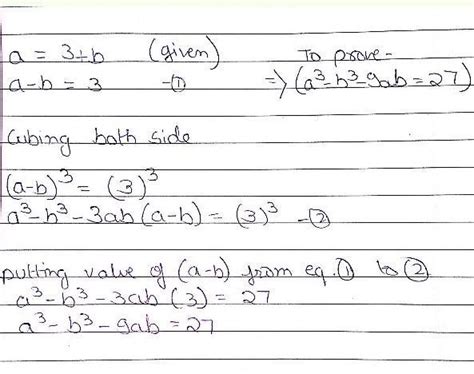 a = 3+b (given) To prove-
a-b = 3 -① => (a³-b³-9ab=27)
Cubing both side
(a-b)³ = (3)³
a³-b³-3ab(a-b) = (3)³ -②
putting value of (a-b) from eq.① to ②
a³-b³-3ab(3) = 27
a³-b³-9ab=27